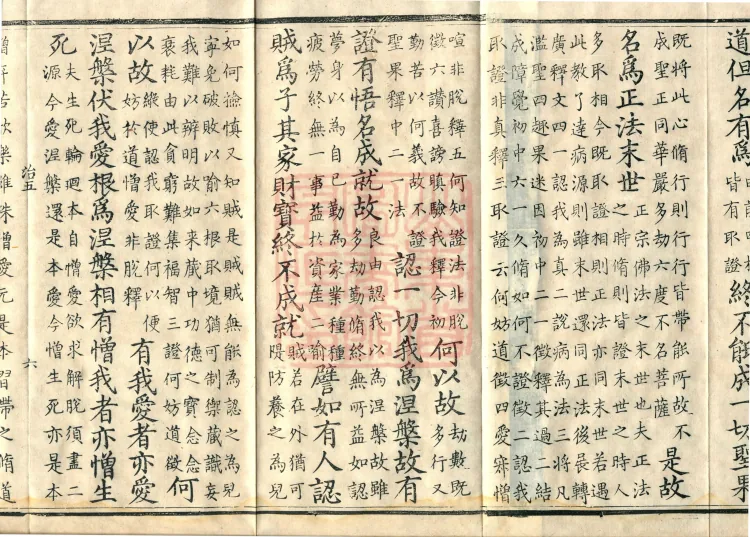 道但名有為
皆有取證
終不能成一切聖果
既將此心脩行則行行皆帶能所故不
成聖正同華嚴多劫六度不名菩薩
是故
名為正法末世
之時脩則皆證末世之時人
正宗佛法之
末世也夫正法
多取相今既取證相則正法亦同末世若遇
此教了達病源則雖末世還同正法後長轉
廣釋文四一認我為真二說病為法三將凡
濫聖四趣果迷因初中二一徵釋其過二結
成障覺初中六一久脩如何不證徵二認我
取證非真釋三取證云何妨道徵四愛寐憎
喧非脫釋五何知證法非脫
徵六讚喜謗瞋驗我釋今初
何以故
劫數既
多行又
勤苦以何義故不證
聖果釋中二一法
認一切我為涅槃故有
證有悟名成就故
良由認我以為涅槃故雖
多劫勤脩終無所益如認
夢身以為自己勤為家業種種
疲勞終無一事益於資產二喻
譬如有人認
賊為子其家財寶終不成就
賊若在外猶可
隄防養之為兒
如何撿慎又知賊是賊賊無能為認之為兒
寧免破敗以喻六根取境猶可制禦藏識妄
我難以辨明故如來藏中功德之寶念念
衰耗由此貧窮難集福智三證何妨道徵
何
以故
縱使認我取證何以便
妨於道憎愛非脫釋
有我愛者亦愛
涅槃伏我愛根為涅槃相有憎我者亦憎生
死
夫生死輪迴本自憎愛欲求解脫須盡二
源今愛涅槃還是本愛今憎生死亦是本
治五 六
憎所苦欣樂雖殊憎愛元是本習帶之脩道